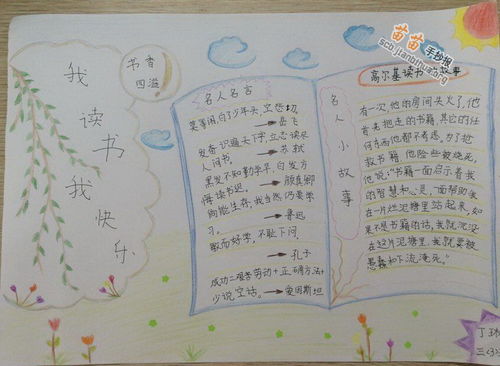 我读书我快乐
书香
四溢
苗苗
手抄报
sc.jianbihua.org
名人名言
莫等闲,白了少年头,空悲切。
→岳飞
发奋识遍天下字,立志读尽
人间书。→苏轼
黑发不知勤学早,白发方
悔读书迟。→颜真卿
倘能生存,我当然仍要学
习。→鲁迅
敏而好学,不耻下问。
→孔子
成功=艰苦劳动+正确方法+
少说空话。→爱因斯坦
高尔基读书故事
名人小故事
有一次,他的房间失火了,他
首先抱走的书籍,其它的任
何东西他都不考虑。为了抢
救书籍,他险些被烧死。
他说:"书籍一面启示着我
的智慧和心灵,一面帮助我
在一片烂泥塘里站起来,如
果不是书籍的话,我就沉没
在这片泥塘里,我就要被
愚蠢和下流淹死。"
丁
三(3)